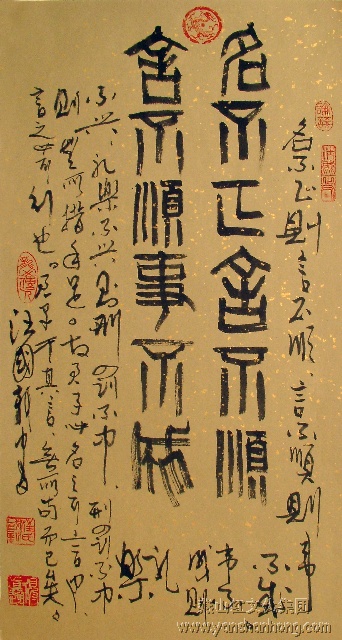 名不正則言不順、言不順則事
不成
名不正言不順
事不
成則
言不順事不成
礼
樂
不兴、礼樂不兴則刑罰不中、刑罰不中
則民無所措手足。故君子名之可言也、
言之必可行也。君子于其言、無所苟而已矣。
汪國新
www.yanshanhong.com